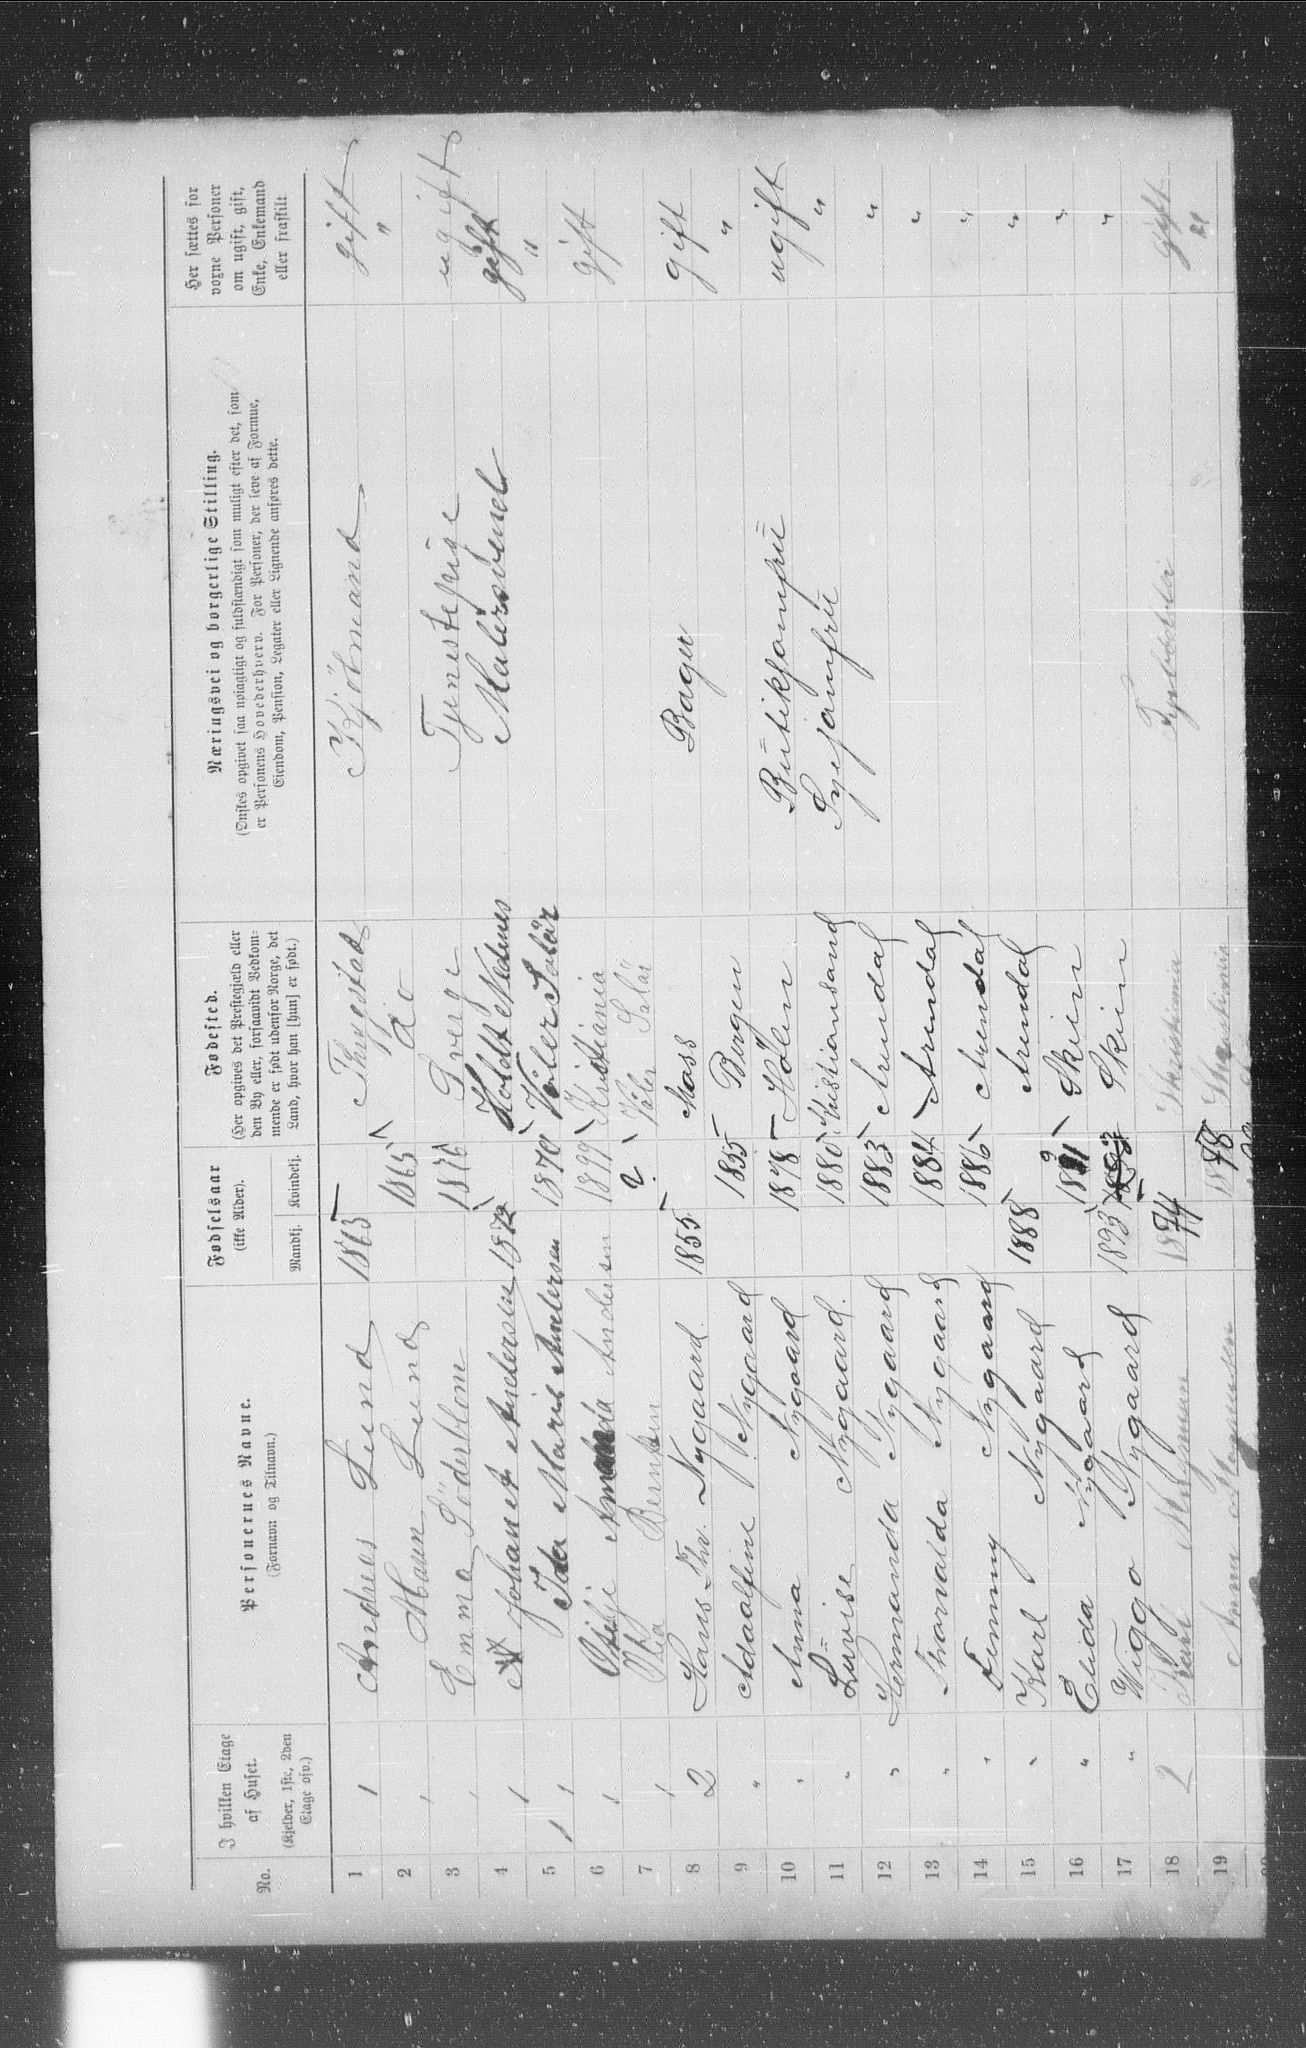 No. | I hvilken Etage af Huset. (Kjelder, 1ste, 2den Etage osv.) | Personernes Navne. (Fornavn og Tilnavn.) | Fødselsaar (ikke Alder). Mandkj. | Kvindekj. | Fødested. (Her opgives det Prestegjæld eller den By eller, forsaavidt Vedkommende er født udenfor Norge, det Land, hvor han [hun] er født.) | Næringsvei og borgerlige Stilling. (Ønskes opgivet saa nøiagtigt og fuldstændigt som muligt efter det, som er Personens Hovederhverv. For Personer, der leve af Formue, Eiendom, Pension, Legater eller Lignende anføres dette. | Her sættes for voxne Personer om ugift, gift, Enke, Enkemand eller fraskilt
1 | 1 | Andreas Lund | 1863 | | Thrygstad | Kjöbmand | gift
2 | Maren Lund | | 1865 | do | | "
3 | Emma Söderblom | | 1876 | Sverge | Tjenestepige | ugift
4 | Johanes Andersen | 1872 | | Holdt Nedenes | Malersvend | gift
5 | 1 | Ida Marie Andersen | | 1870 | Våler Solör | | "
6 | Amanda Andersen | | 1899 | Kristiania
7 | Olia Bernsen | | | Våler Solör | | gift
8 | 2 | Hans Thv. Nygaard. | 1855 | | Moss | Bager | gift
9 | " | Adolfine Nygaard | | 1855 | Bergen | | "
10 | " | Anna Nygaard | | 1878 | Hölen | Butikjomfru | ugift
11 | " | Lovise Nygaard. | | 1880 | Kristiansand | Syejomfru | "
12 | " | Hermanda Nygaard | | 1883 | Arendal | | "
13 | " | Thorvalda Nygaard | | 1884 | Arendal | | "
14 | " | Fenny Nygaard | | 1886 | Arendal | | "
15 | " | Karl Nygaard | 1888 | | Arendal | | "
16 | " | Elida Nygaard | | 1891 | Skien | | "
17 | " | Wiggo Nygaard | 1893 | | Skien | | "
18 | 2 | Karl Magnusen | 1874 | | Kristiania | | gift
19 | Anna Magnusen | | 1878 | Kristiania | | "